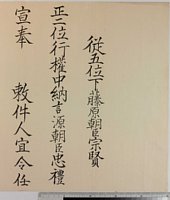 從五位下藤原朝臣宗賢
正二位行權中納言源朝臣忠禮
宣奉　敕件人宜令任